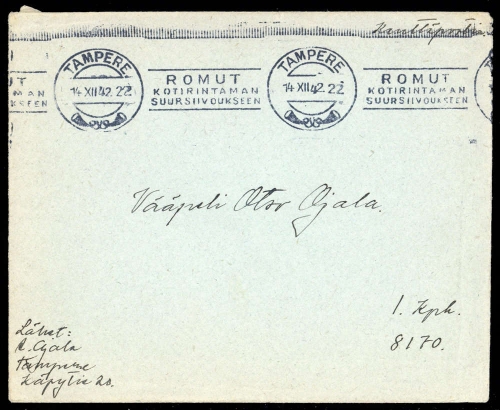 Kenttäpostia
TAMPERE
14 XII 42. 22
ROMUT
KOTIRINTAMAN
SUURSIIVOUKSEEN
TAMPERE
14 XII 42. 22
ROMUT
KOTIRINTAMAN
SUURSIIVOUKSEEN
UT
AMAN
KSEEN
Vääpeli Otso Ojala.
1. Kph.
8170.
Lähet:
Ojala
Tampere
Käpytie 20.